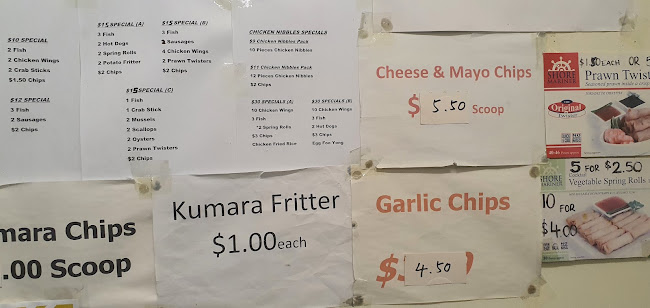 $10 SPECIAL
2 Fish
2 Chicken Wings
2 Crab Sticks
$1.50 Chips
$12 SPECIAL
3 Fish
2 Sausages
$2 Chips
$15 SPECIAL (A)
3 Fish
2 Hot Dogs
2 Spring Rolls
2 Potato Fritter
$2 Chips
$15 SPECIAL (B)
3 Fish
2 Sausages
4 Chicken Wings
2 Prawn Twisters
$2 Chips
$15 SPECIAL (C)
1 Fish
1 Crab Stick
2 Mussels
2 Scallops
2 Oysters
2 Prawn Twisters
$2 Chips
CHICKEN NIBBLES SPECIALS
$9 Chicken Nibbles Pack
10 Pieces Chicken Nibbles
$11 Chicken Nibbles Pack
12 Pieces Chicken Nibbles
$2 Chips
$30 SPECIALS (A)
10 Chicken Wings
3 Fish
*2 Spring Rolls
$3 Chips
Chicken Fried Rice
$30 SPECIALS (B)
10 Chicken Wings
3 Fish
2 Hot Dogs
$3 Chips
Egg Foo Yung
Cheese & Mayo Chips
$ 5.50 Scoop
$1.50 EACH OR 5
SHORE
MARINER
Prawn Twist
Original
Twister
NO
5 FOR $2.50
SHORE
MARINER
Cocktail
Vegetable Spring Rolls
10 FOR
$4.00
mara Chips
.00 Scoop
Kumara Fritter
$1.00 each
Garlic Chips
$ 4.50